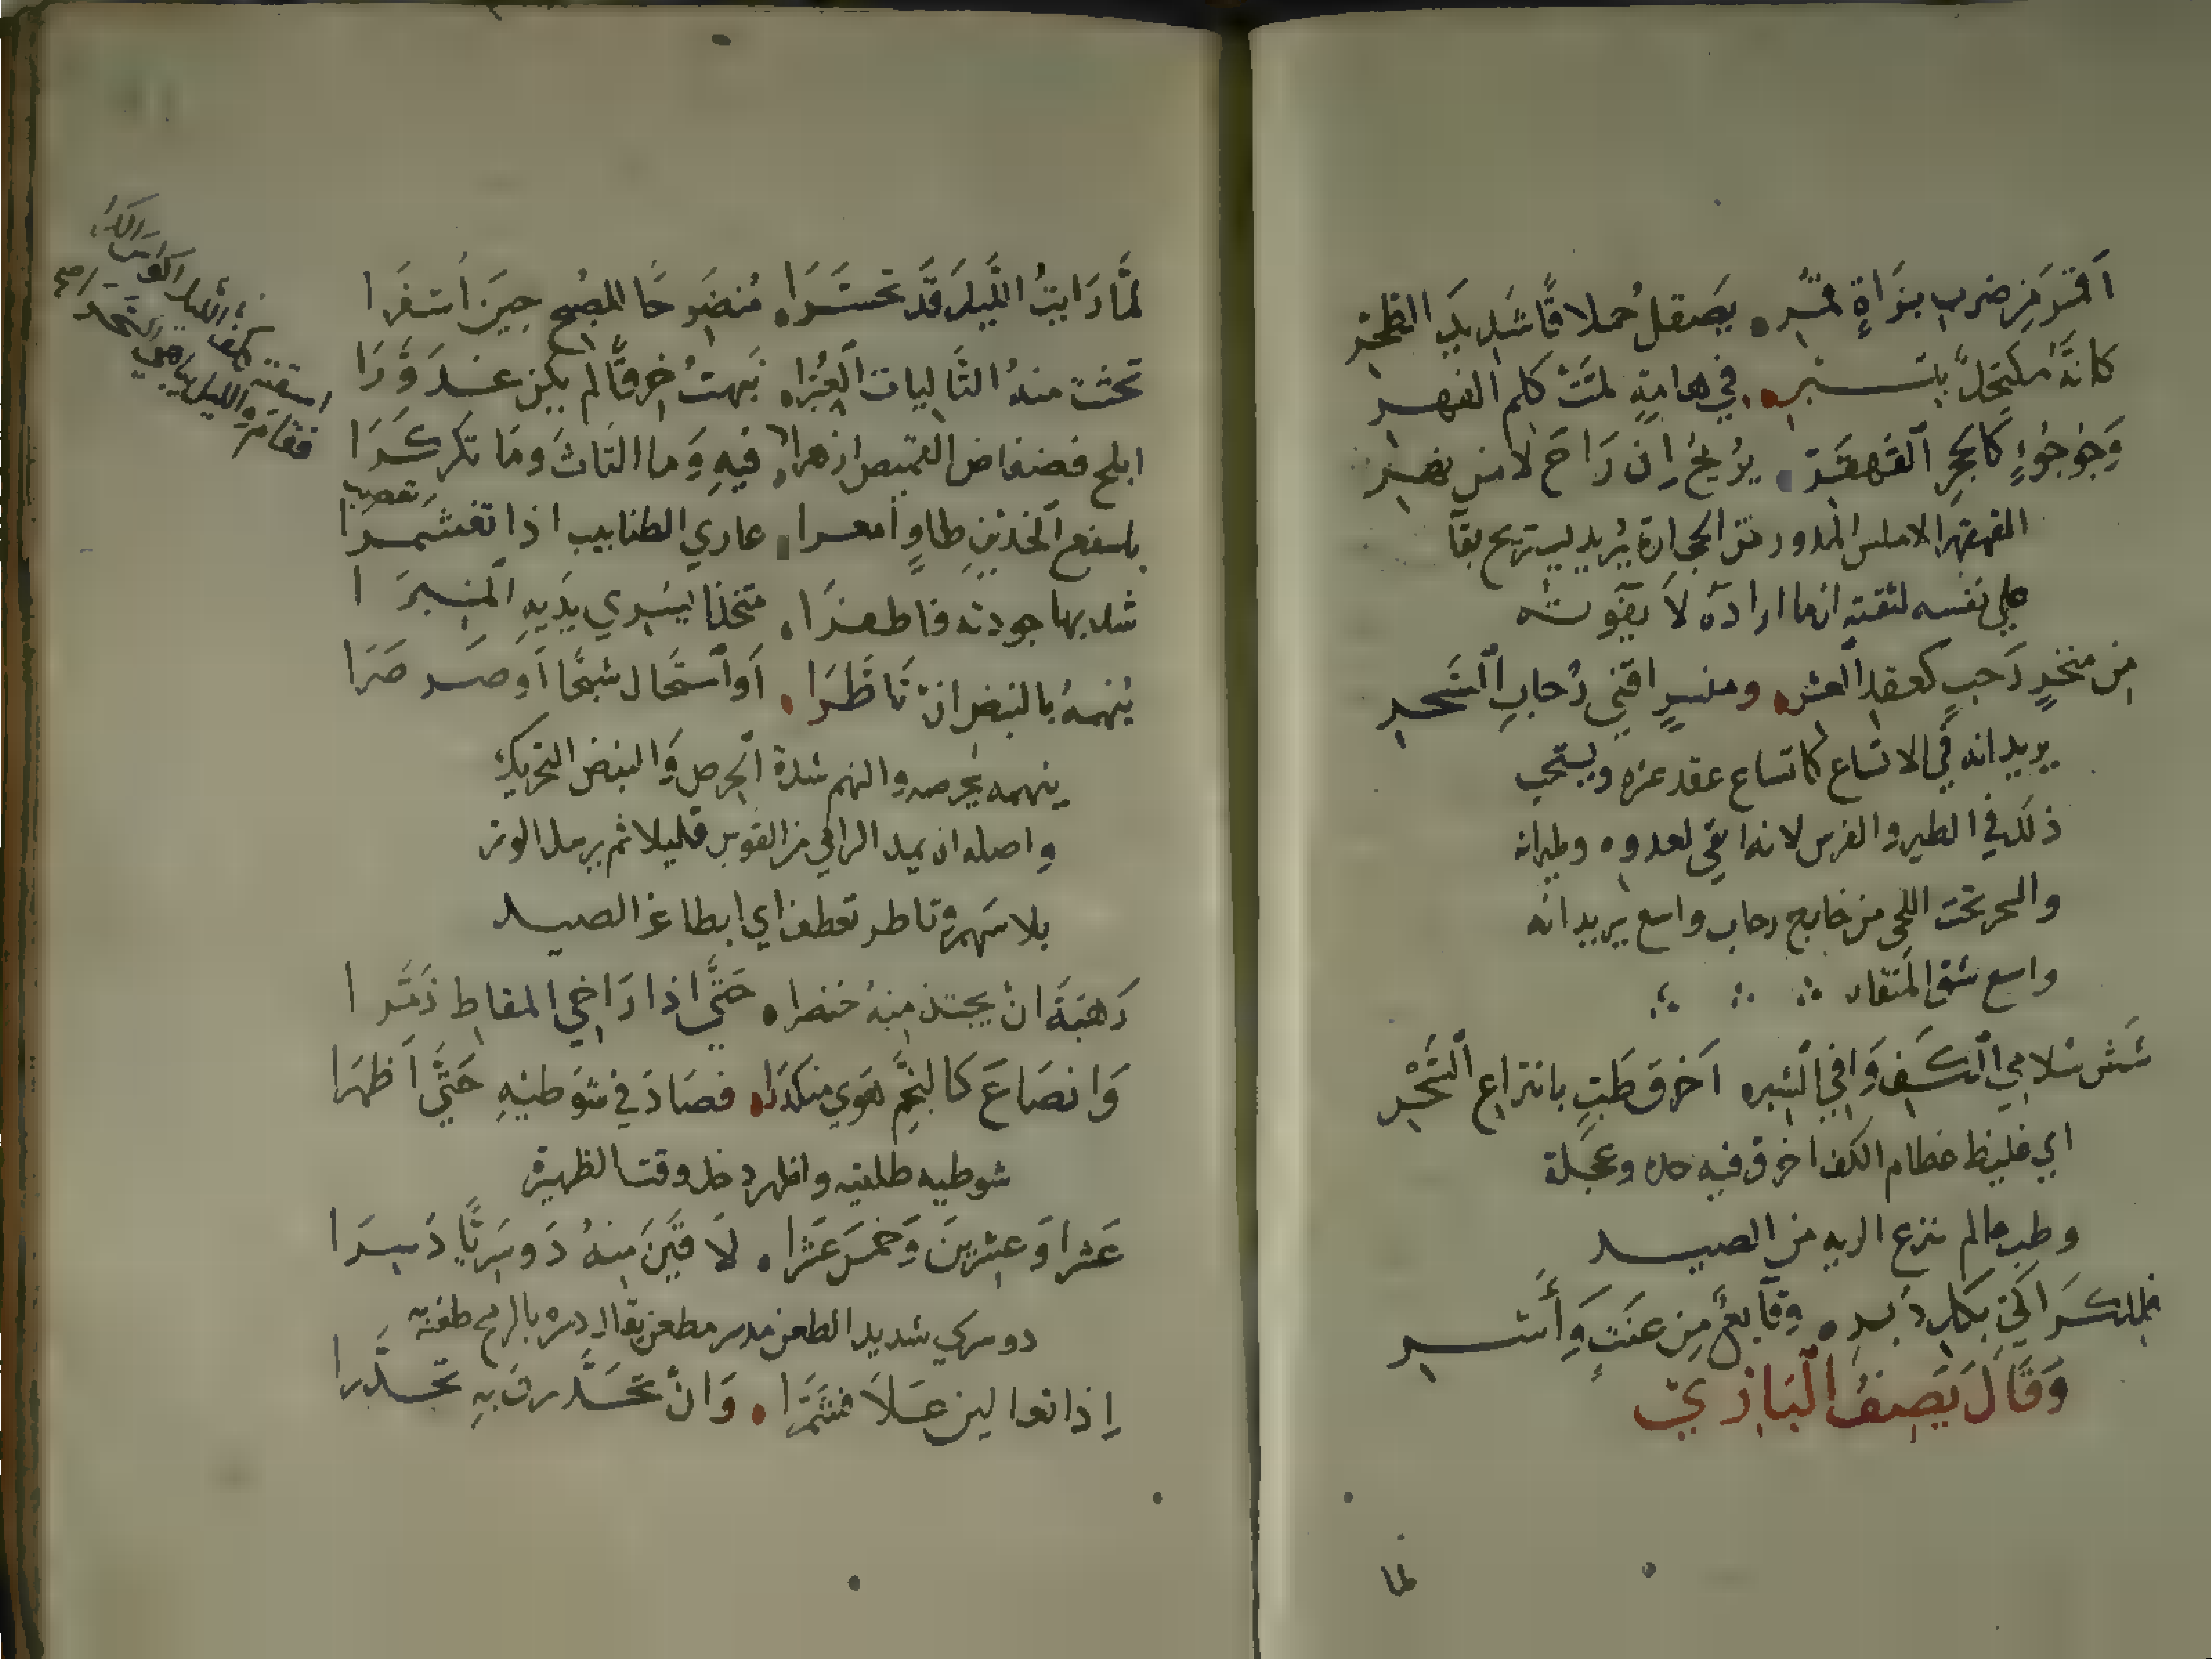 اقمر من ضرب بزاة قمر • يصقل حملاقا شديد الطحر
كانه مكتحل بتبر • في هامة لمت كلم الفهر
وجوجؤ كالحجر القهقر • يريح ان راح لا من بهر
القهقر الاملس المدور من الحجارة يريد يستريح بقآ
على نفسه لثقته ان ما اراده لا يفوته
من منخر رحب كعقد العشر • ومنسر اقنى رحاب الشحر
يريد انه في الاتساع كاتساع عقد عشره ويستحب
ذلك في الطير والفرس لانه ابقى لعدوه وطيرانه
والشحر تحت اللحى من خارج رحاب واسع يريد انه
واسع شق المنقار
شثن سلامى الكف وافي الشبر • اخرق طب بانتزاع السحر
اي غليظ عظام الكف اخرق فيه حدة وعجلة
وطب عالم بنزع الرية من الصيد
فللكراكي بكل دبر • وقايع من عنت واسر
وقال يصف البازي
لما
لما رايت الليل قد تحسرا • منضوحا الصبح حين اسفرا
تحثت منه التاليات الغبرا • نبهت خرقا لم يكن عذورا
ابلج فضفاض القميص ازهرا • فيه وما التاث وما تكركرا
باسفع الخدين طاو امعرا • عاري الظنابيب اذا تغشمرا
تعصب
شد بها جودته فاطعذرا • متخذا يسرى يديه المنبرا
ينهمه بالنبض ان تاطرا • او استحال شبحا او صرصرا
ينهمه يحرصه والنهم شدة الحرص والنبض التحريك
واصله ان يمد الرامي من القوس قليلا ثم يرسل الوتر
بلا سهم وتاطر تعطف اي ابطا عن الصيد
رهبة ان يجتذ منه خنصرا • حتى اذا راخى المقاط زمرا
وانصاع كالنجم هوى منكدرا • فصاد في شوطيه حتى اظهرا
شوطيه طلقيه واظهر دخل وقت الظهيرة
عشرا وعشرين وخمس عشرا • لاقين منه دوسريا دسرا
دوسري شديد الطعن مدسر مطعن يقال دسره بالرمح طعنه
اذا تعالين علا فشمرا • وان تحدرن به تحدرا
اسقته كف الليل اكواس الكرا